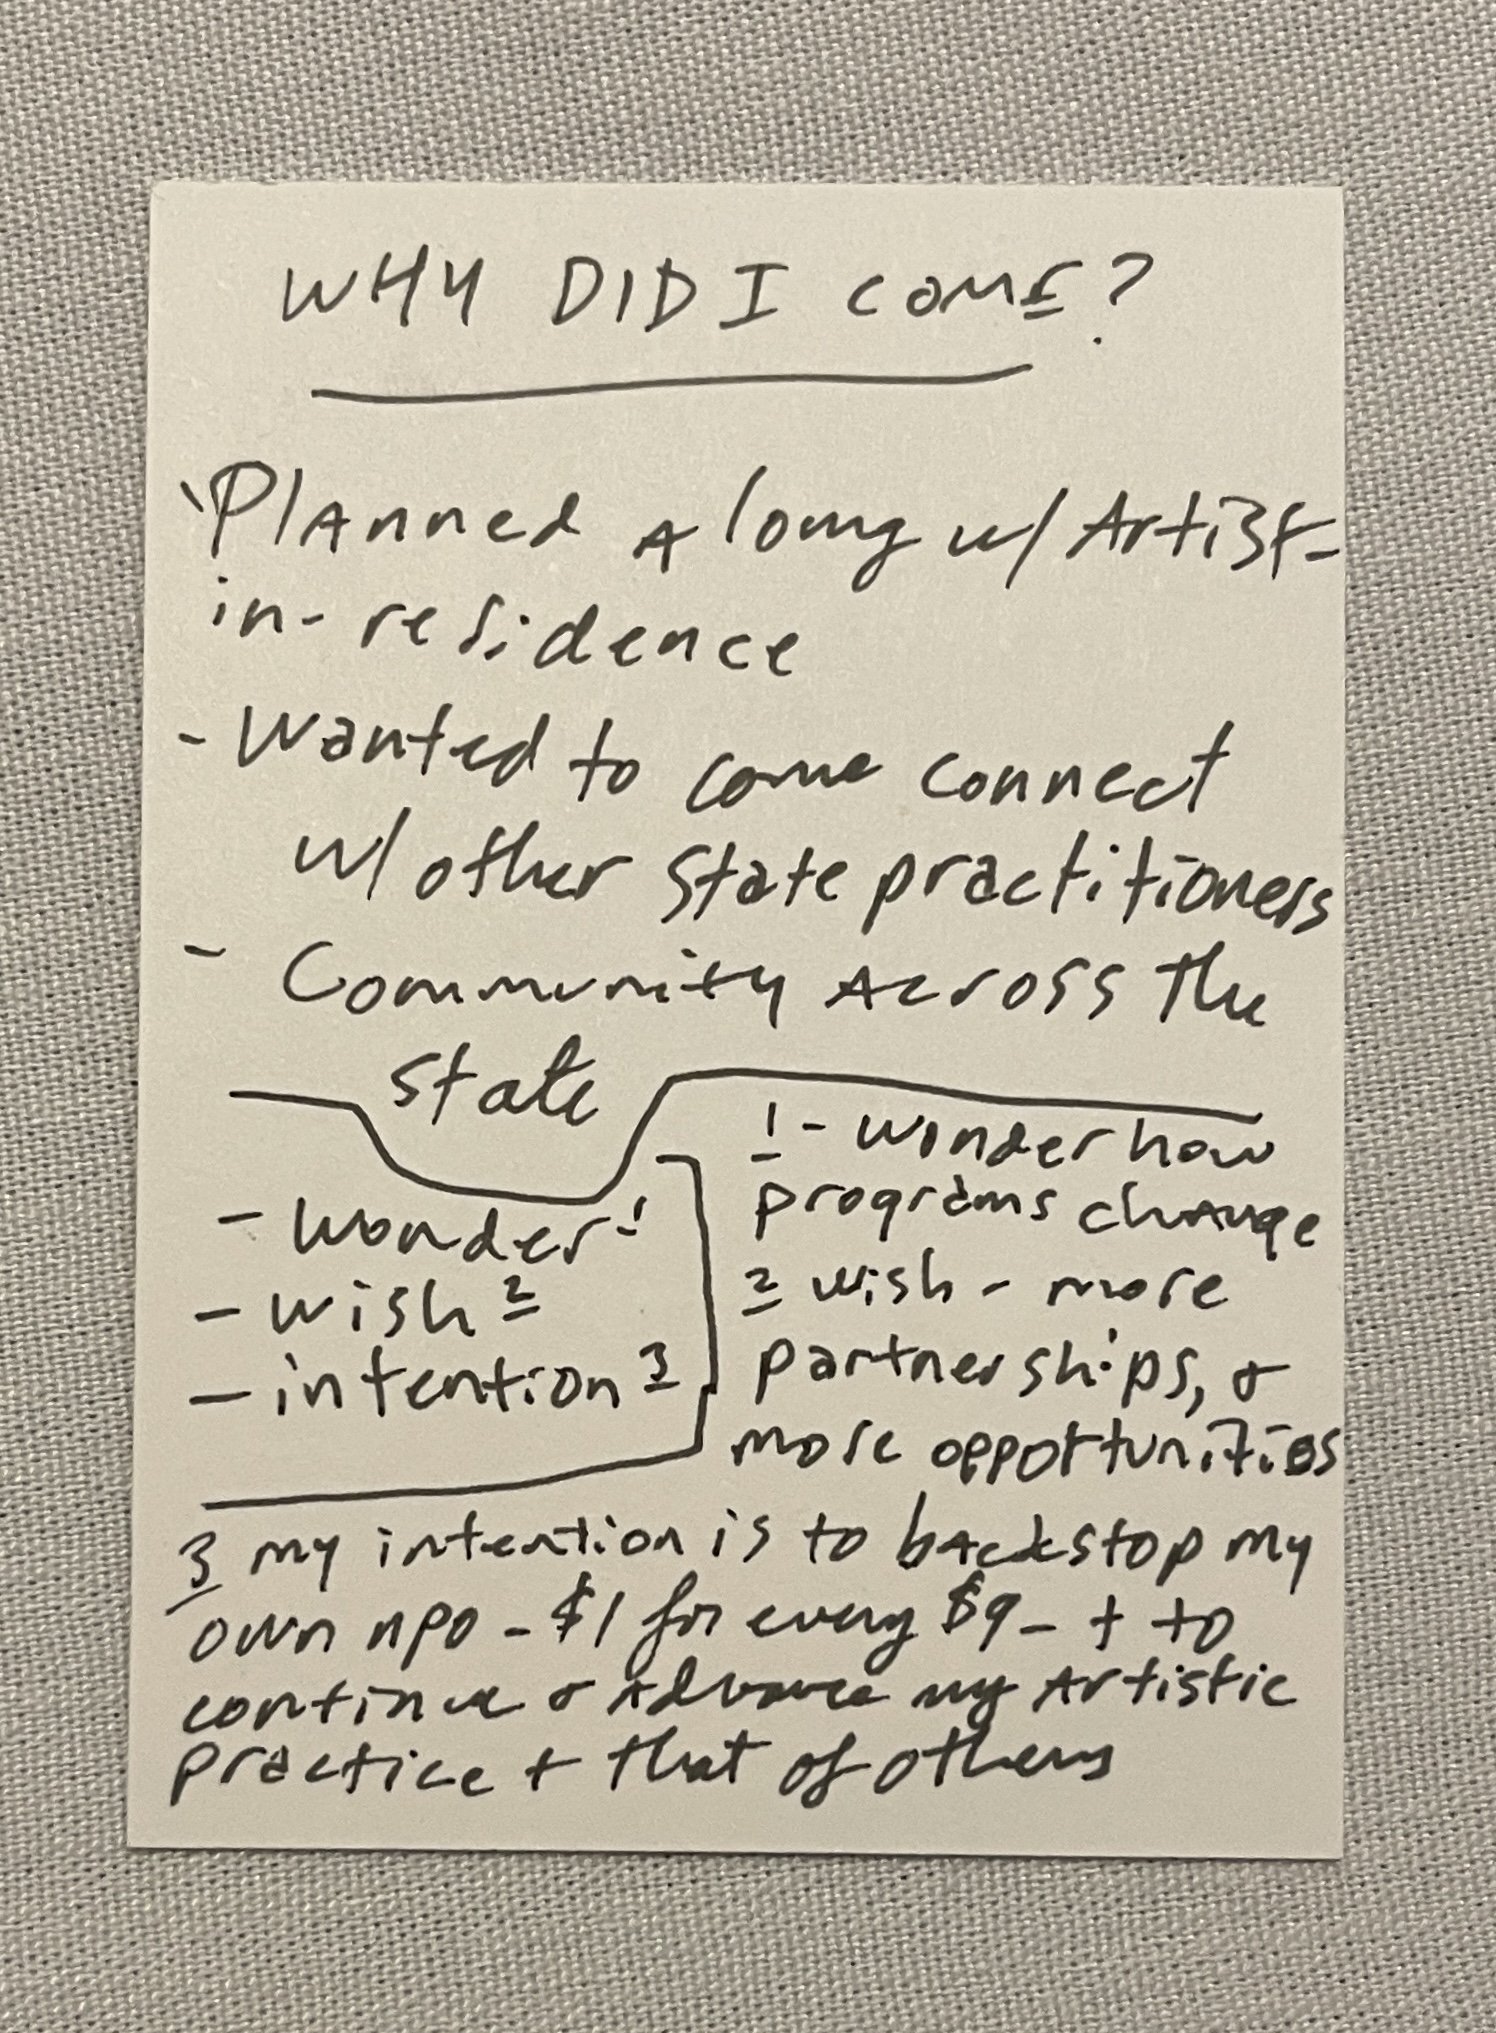 WHY DID I COME?
'Planned along w/ Artist-
in-residence
- Wanted to come connect
w/ other state practitioners
- Community Across the
state
- Wonder 1
- wish 2
- intention 3
1 - wonder how
programs change
2 wish - more
partnerships, &
more opportunities
3 my intention is to backstop my
own npo - $1 for every $9 - + to
continue & Advance my Artistic
practice + that of others